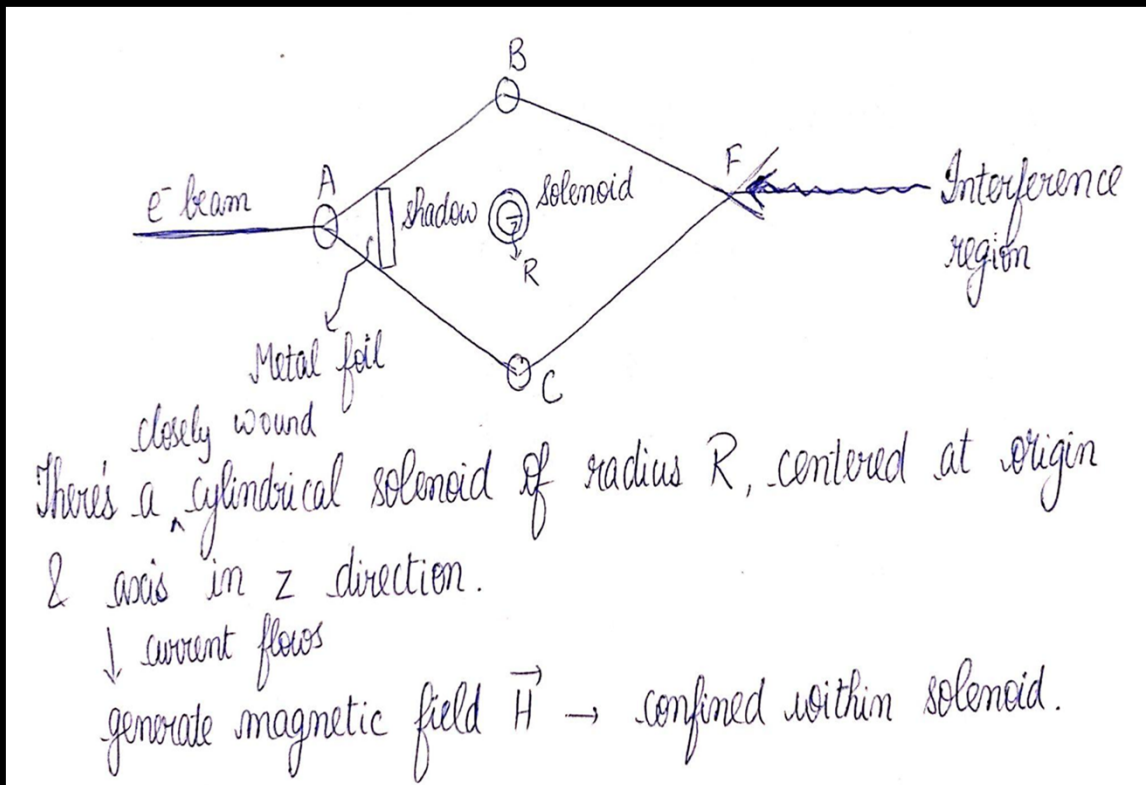 B
A
F
e⁻ beam
shadow
solenoid
Interference
region
R
Metal foil
C
closely wound
There's a ^ cylindrical solenoid of radius R, centered at origin
& axis in z direction.
↓ current flows
generate magnetic field H⃗ → confined within solenoid.